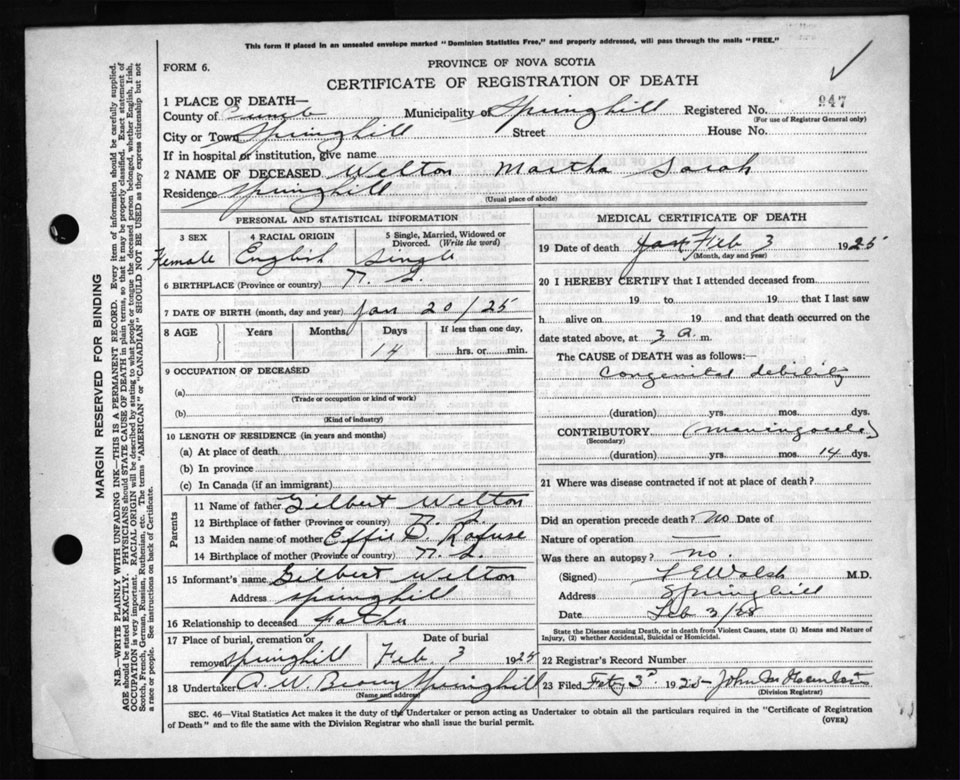 This form if placed in an unsealed envelope marked "Dominion Statistics Free," and properly addressed, will pass through the mails "FREE."
FORM 6.
PROVINCE OF NOVA SCOTIA
CERTIFICATE OF REGISTRATION OF DEATH
1 PLACE OF DEATH—
County of Cumb Municipality of Springhill Registered No. 947
(For use of Registrar General only)
City or Town Springhill Street House No.
If in hospital or institution, give name
2 NAME OF DECEASED Welton Martha Sarah
Residence Springhill
(Usual place of abode)
PERSONAL AND STATISTICAL INFORMATION
3 SEX 4 RACIAL ORIGIN 5 Single, Married, Widowed or Divorced. (Write the word)
Female English Single
6 BIRTHPLACE (Province or country) N. S.
7 DATE OF BIRTH (month, day and year) Jan 20/25
8 AGE Years Months Days If less than one day,
14 hrs. or min.
9 OCCUPATION OF DECEASED
(a)
(Trade or occupation or kind of work)
(b)
(Kind of industry)
10 LENGTH OF RESIDENCE (in years and months)
(a) At place of death
(b) In province
(c) In Canada (if an immigrant)
Parents
11 Name of father Gilbert Welton
12 Birthplace of father (Province or country) N. S.
13 Maiden name of mother Effie Rafuse
14 Birthplace of mother (Province or country) N. S.
15 Informant's name Gilbert Welton
Address Springhill
16 Relationship to deceased Father
17 Place of burial, cremation or removal Springhill Date of burial Feb. 3 1925
18 Undertaker A. W. Brown Springhill
(Name and address)
MEDICAL CERTIFICATE OF DEATH
19 Date of death Jan Feb 3 1925
(Month, day and year)
20 I HEREBY CERTIFY that I attended deceased from
19 to 19 that I last saw
h alive on 19 and that death occurred on the
date stated above, at 3 a. m.
The CAUSE of DEATH was as follows:—
Congenital debility
(duration) yrs. mos. dys.
CONTRIBUTORY (Meningocele)
(Secondary)
(duration) yrs. mos. 14 dys.
21 Where was disease contracted if not at place of death?
Did an operation precede death? No Date of
Nature of operation —
Was there an autopsy? no.
(Signed) Walsh M.D.
Address Springhill
Date Feb 3/25
State the Disease causing Death, or in death from Violent Causes, state (1) Means and Nature of Injury, (2) whether Accidental, Suicidal or Homicidal.
22 Registrar's Record Number
23 Filed 3rd 1925 John
(Division Registrar)
SEC. 46—Vital Statistics Act makes it the duty of the Undertaker or person acting as Undertaker to obtain all the particulars required in the "Certificate of Registration
of Death" and to file the same with the Division Registrar who shall issue the burial permit.
(OVER)
MARGIN RESERVED FOR BINDING
N.B.—WRITE PLAINLY WITH UNFADING INK—THIS IS A PERMANENT RECORD. Every item of information should be carefully supplied.
AGE should be stated EXACTLY. PHYSICIANS should STATE CAUSE OF DEATH in plain terms, so that it may be properly classified. Exact statement of
OCCUPATION is very important. RACIAL ORIGIN will be described by stating to what people or tongue the deceased person belonged, whether English, Irish,
Scotch, French, German, Russian, Ruthenian, etc. The terms "AMERICAN" or "CANADIAN" SHOULD NOT BE USED as they express citizenship but not
a race or people. See instructions on back of Certificate.